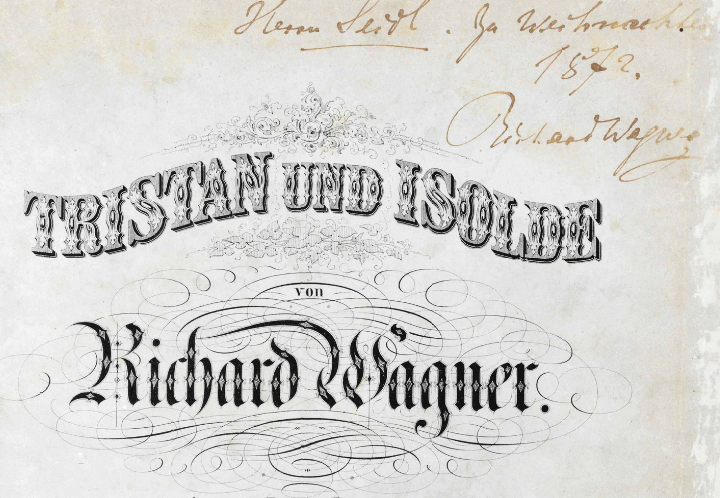 Herrn Seidl. Zu Weihnachten
1872.
Richard Wagner
TRISTAN UND ISOLDE
von
Richard Wagner.